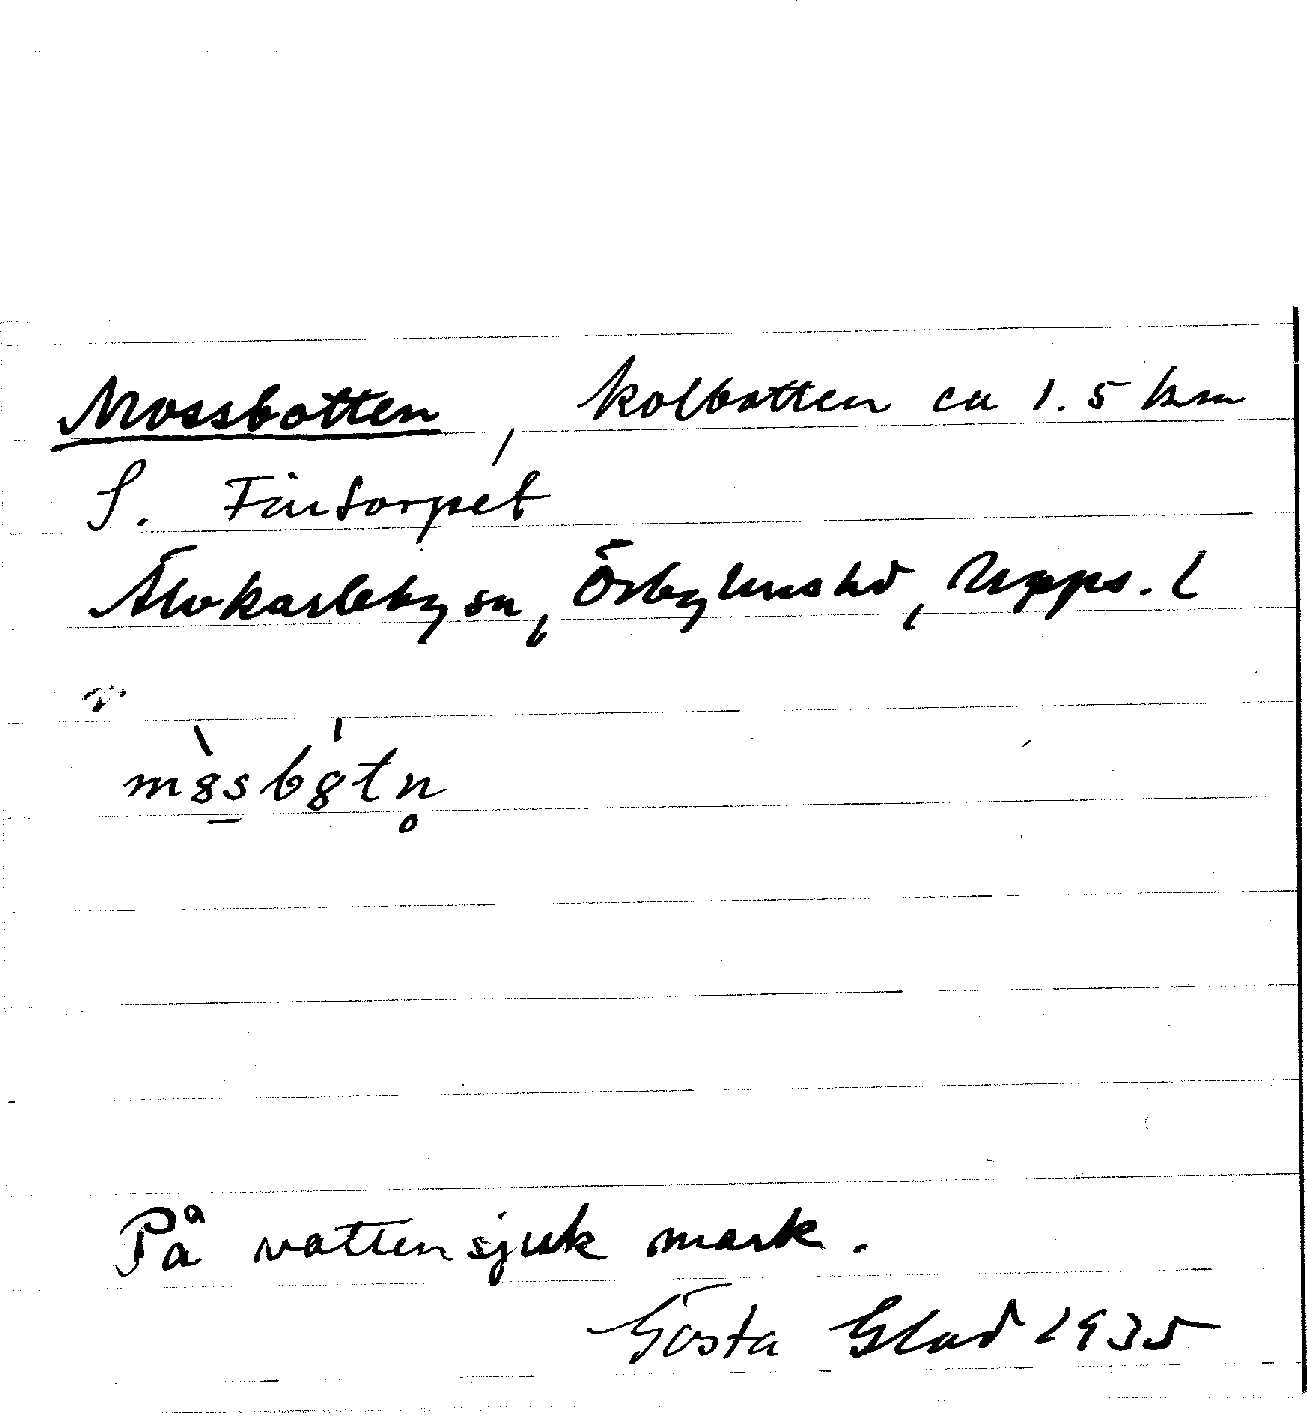 Mossbotten, kolbotten ca 1.5 km
S. Fintorpet
Älvkarleby sn, Örbyhus hd, Upps. l
På vattensjuk mark.
Gösta Glad 1935